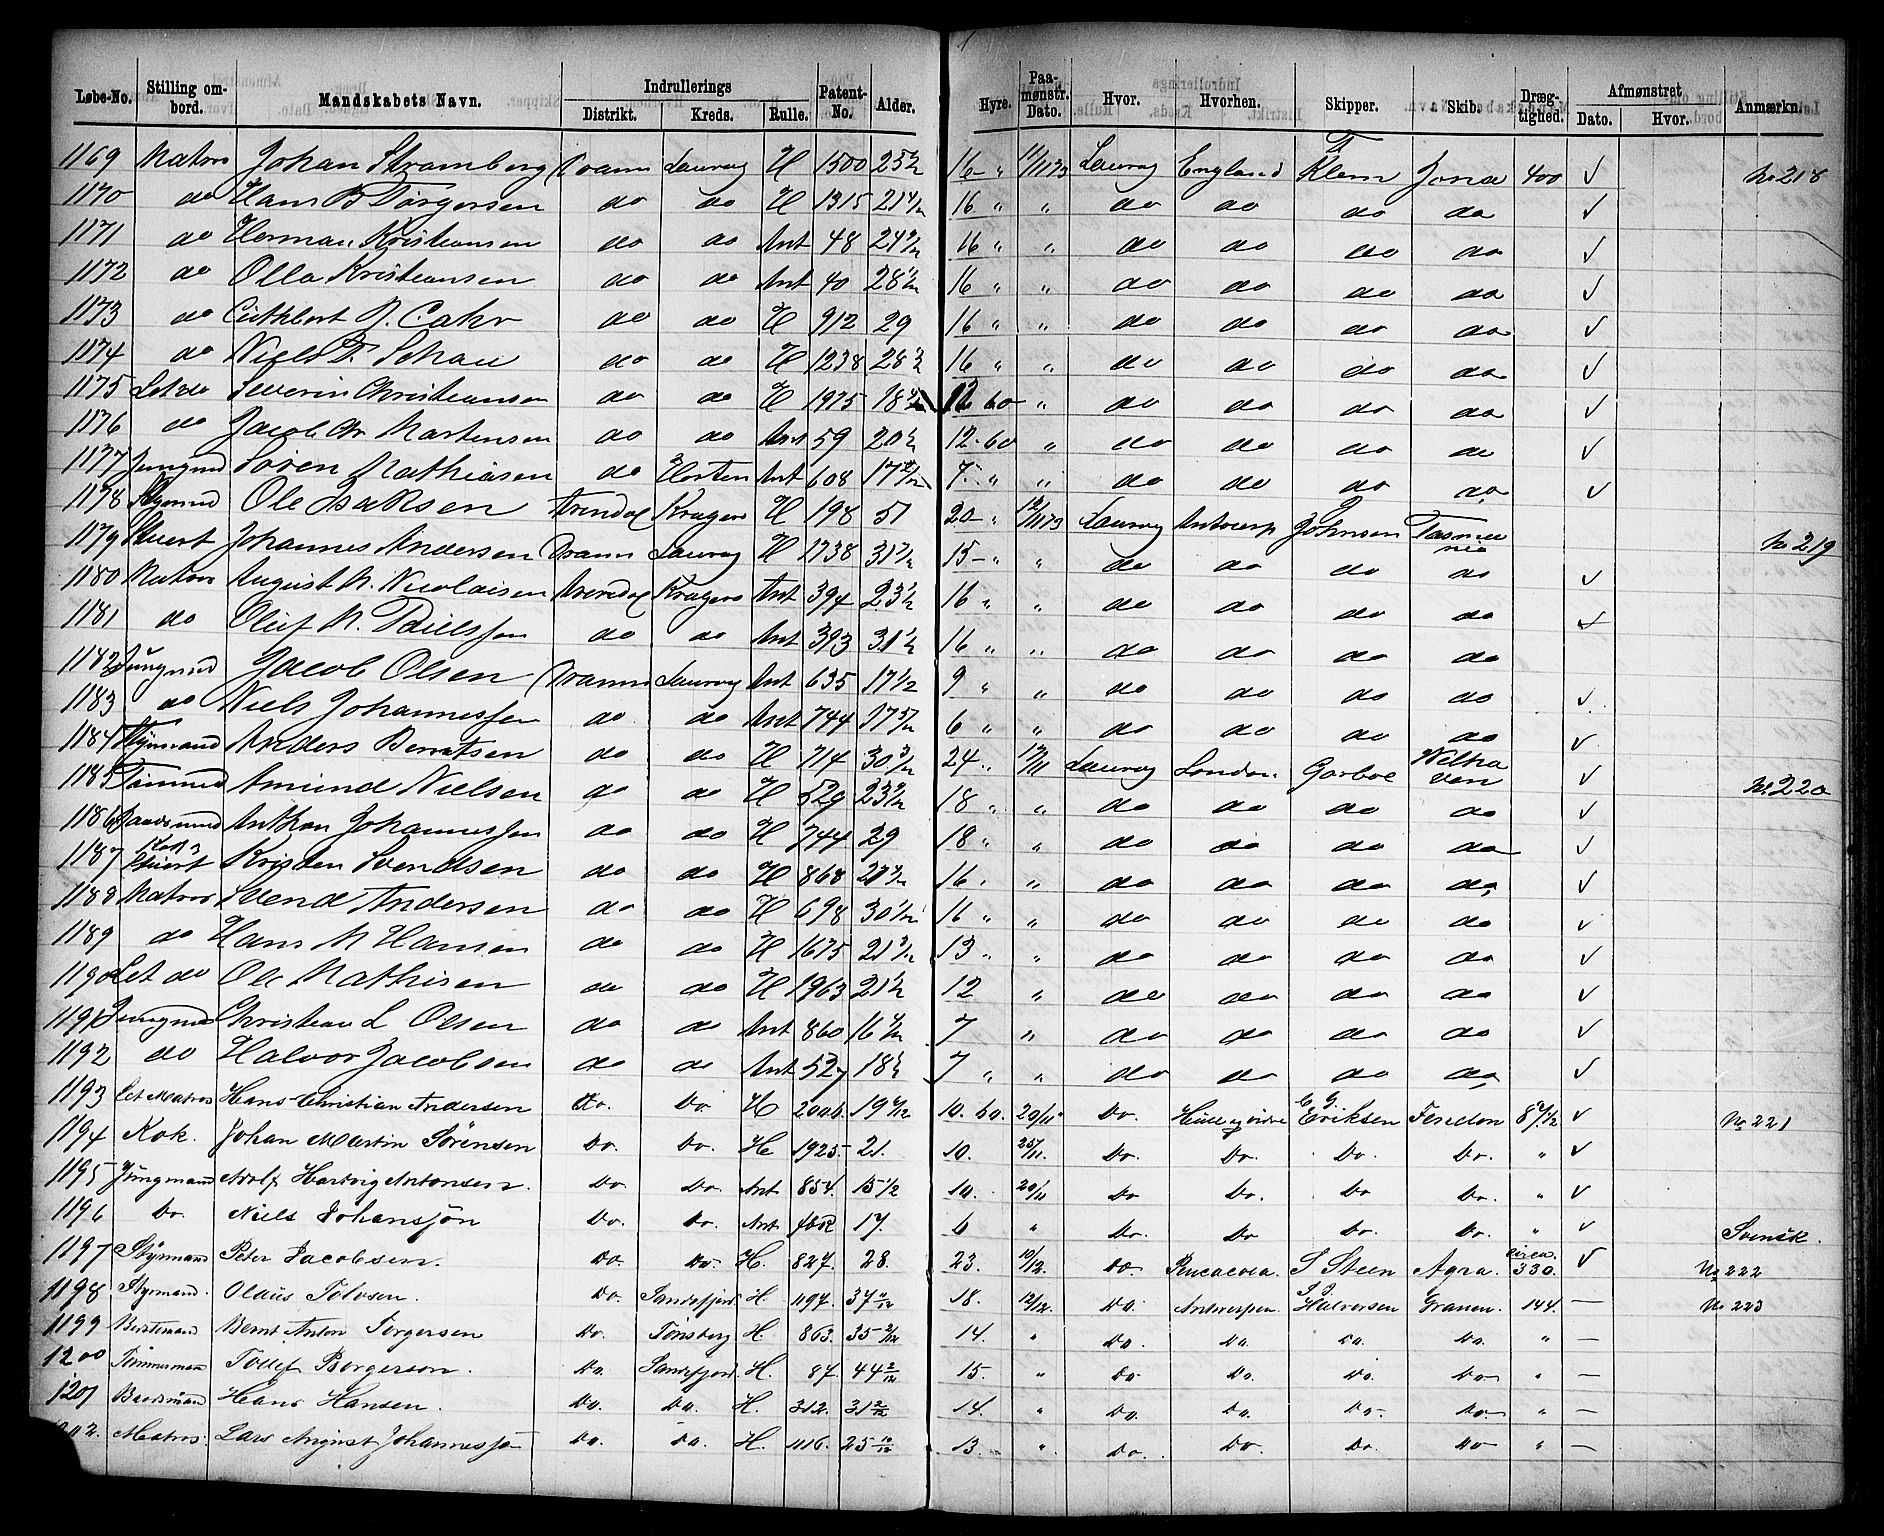 Løbe-No. Stilling ombord. Mandskabets Navn. Indrullerings Distrikt. Kreds. Rulle. Patent-No. Alder. Hyre. Paamønstr. Dato. Hvor. Hvorhen. Skipper. Skib. Drægtighed. Afmønstret Dato. Hvor. Anmærkn.
1169 Matros Johan Stramberg Dramm Laurvg H 1500 16 " Laurvg England Klem Jona 400 ✓ No 218
1170 do Hans B Torgersen do do H 1315 16 " " do do do do ✓
1171 do Herman Kristiansen do do Ant 48 16 " " do do do do ✓
1172 do Olla Kristiansen do do Ant 40 16 " " do do do do ✓
1173 do Cuthbert do do H 912 29 16 " " do do do do ✓
1174 do Niels F. Schau do do H 1238 16 " " do do do do ✓
1175 Let do Severin Christiansen do do H 1975 60 " do do do do ✓
1176 do Jacob Chr Martensen do do Ant 59 12 60 " do do do do ✓
1177 Jungmd Søren Mathiasen do Horten Ant 608 7 " " do do do do ✓
1178 Stymd Ole Isaksen Arendal Kragerø H 198 51 20 " 12/11 73 Laurvg Antwerp Johnsen Tasmania No 219
1179 Stuert Johannes Andersen Dramm Laurvg H 1738 15 " " do do do do ✓
1180 Matros August N. Nicolaisen Arendal Kragerø Ant 394 16 " " do do do do ✓
1181 do Oluf N. do do Ant 393 16 " " do do do do
1182 Jungmd Jacob Olsen Dramm Laurvg Ant 635 17 1/2 9 " " do do do do ✓
1183 do Niels Johannessen do do Ant 744 6 " " do do do do ✓
1184 Styrmand Anders Berntsen do do H 714 24 " Laurvg London Garboe ✓ No 220
1185 Tømmd Amund Nielsen do do H 529 18 " " do do do do ✓
1186 Baadsmd Anthon Johannessen do do H 744 29 18 " " do do do do ✓
1187 Kok & Stuert Kristen Svendsen do do H 868 16 " " do do do do ✓
1188 Matros Svend Andersen do do H 698 " " do do do do ✓
1189 do Hans M Hansen do do H 1675 13 " " do do do do ✓
1190 Let do Ole Mathisen do do H 1963 12 " do do do do ✓
1191 Jungmd Christian L Olsen do do Ant 860 7 " do do do do ✓
1192 do Halvor Jacobsen do do Ant 527 7 " " do do do do ✓
1193 Let Matros Hans Christian Andersen Do. Do. H 2006 10. 60. 20/11 Do. Hull Eriksen ✓ No 221
1194 Kok. Johan Martin Sørensen Do. Do. H 1925. 21. 10. Do. Do. Do. Do. " ✓
1195 Jungmand Adolf Hartvig Antonsen. Do. Do. Ant 854. 15 1/2 10. 20/11 Do Do. Do Do. " ✓
1196 Do. Niels Johansjøn Do. Do. Ant 17. 6 " Do. Do Do. Do. " ✓ Svensk.
1197 Styrmand Peter Jacobsen. Do. Do. H. 827. 28. 23. 10/12. Do. S Steen Agra. circa. 330. ✓ No 222
1198 Styrmand. Olaus Tolvsen. Do. Sandefjord H. 1197. 18. 12/12. Do. Antwerpen Halversen Granen. 144. — No 223
1199 Bernt Anton Torgersen Do. Tønsberg H. 863. 35 2/12 14. " Do. Do. Do. Do. " —
1200 Tømmermand Tollef Borgerson. Do. Sandefjord. H. 87. 44 2/12 15. " Do. Do. Do. Do " —
1201 Baadsmand Hans Hansen. Do. Do. H. 312. 31 2/12 14. " Do. Do. Do. Do " —
202. Matros. Lars August Do. Do. H. 1116. 25 10/12 13. " Do. Do. Do. Do " —